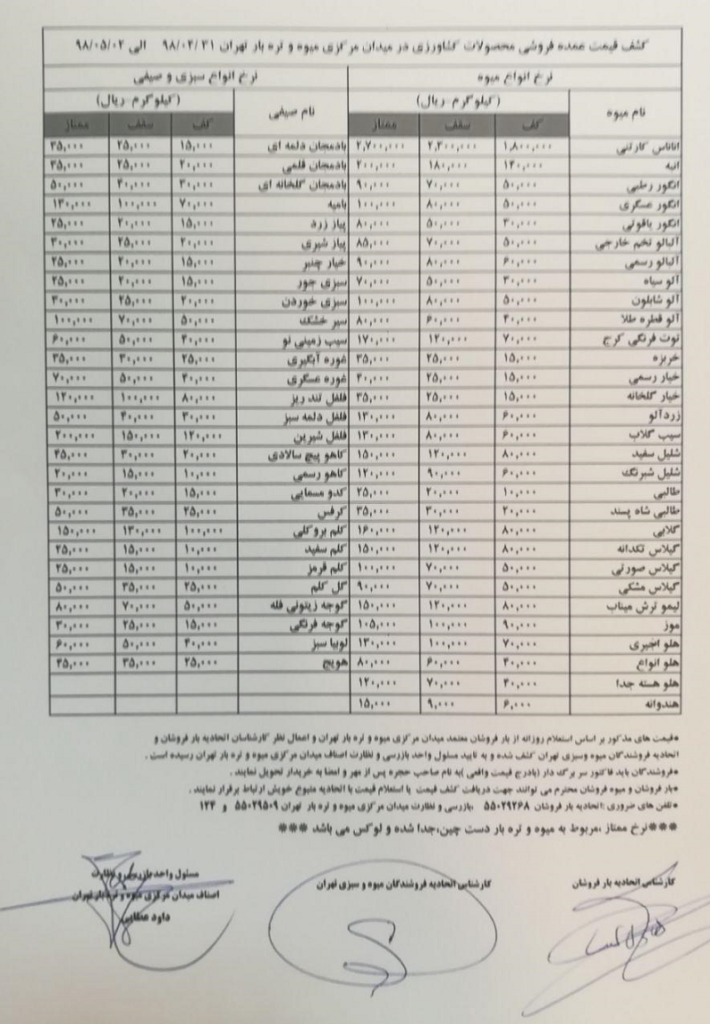 کشف قیمت عمده فروشی محصولات کشاورزی در میدان مرکزی میوه و تره بار تهران ۹۸/۰۴/۳۱ الی ۹۸/۰۵/۰۲
نرخ انواع میوه نرخ انواع سبزی و صیفی
نام میوه (کیلوگرم- ریال) نام صیفی (کیلوگرم- ریال)
کف سقف ممتاز کف سقف ممتاز
آناناس کارتنی ۱,۸۰۰,۰۰۰ ۲,۳۰۰,۰۰۰ ۲,۷۰۰,۰۰۰ بادمجان دلمه ای ۱۵,۰۰۰ ۲۵,۰۰۰ ۳۵,۰۰۰
انبه ۱۴۰,۰۰۰ ۱۸۰,۰۰۰ ۲۰۰,۰۰۰ بادمجان قلمی ۲۰,۰۰۰ ۲۵,۰۰۰ ۳۵,۰۰۰
انگور رطبی ۵۰,۰۰۰ ۷۰,۰۰۰ ۹۰,۰۰۰ بادمجان گلخانه ای ۳۰,۰۰۰ ۴۰,۰۰۰ ۵۰,۰۰۰
انگور عسگری ۵۰,۰۰۰ ۸۰,۰۰۰ ۱۰۰,۰۰۰ بامیه ۷۰,۰۰۰ ۱۰۰,۰۰۰ ۱۳۰,۰۰۰
انگور یاقوتی ۳۰,۰۰۰ ۵۰,۰۰۰ ۸۰,۰۰۰ پیاز زرد ۱۵,۰۰۰ ۲۰,۰۰۰ ۲۵,۰۰۰
آلبالو تخم خارجی ۵۰,۰۰۰ ۷۰,۰۰۰ ۸۵,۰۰۰ پیاز شیری ۲۰,۰۰۰ ۲۵,۰۰۰ ۳۰,۰۰۰
آلبالو رسمی ۶۰,۰۰۰ ۸۰,۰۰۰ ۹۰,۰۰۰ خیار چنبر ۱۵,۰۰۰ ۲۰,۰۰۰ ۲۵,۰۰۰
آلو سیاه ۳۰,۰۰۰ ۵۰,۰۰۰ ۷۰,۰۰۰ سبزی جور ۱۵,۰۰۰ ۲۰,۰۰۰ ۲۵,۰۰۰
آلو شابلون ۵۰,۰۰۰ ۸۰,۰۰۰ ۱۰۰,۰۰۰ سبزی خوردن ۲۰,۰۰۰ ۲۵,۰۰۰ ۳۰,۰۰۰
آلو قطره طلا ۴۰,۰۰۰ ۶۰,۰۰۰ ۸۰,۰۰۰ سیر خشک ۵۰,۰۰۰ ۷۰,۰۰۰ ۱۰۰,۰۰۰
توت فرنگی کرج ۷۰,۰۰۰ ۱۲۰,۰۰۰ ۱۷۰,۰۰۰ سیب زمینی نو ۴۰,۰۰۰ ۵۰,۰۰۰ ۶۰,۰۰۰
خربزه ۱۵,۰۰۰ ۲۵,۰۰۰ ۳۵,۰۰۰ غوره آبگیری ۲۵,۰۰۰ ۳۰,۰۰۰ ۳۵,۰۰۰
خیار رسمی ۱۵,۰۰۰ ۲۵,۰۰۰ ۴۰,۰۰۰ غوره عسگری ۴۰,۰۰۰ ۵۰,۰۰۰ ۷۰,۰۰۰
خیار گلخانه ۱۵,۰۰۰ ۲۵,۰۰۰ ۳۵,۰۰۰ فلفل تند ریز ۸۰,۰۰۰ ۱۰۰,۰۰۰ ۱۲۰,۰۰۰
زردآلو ۶۰,۰۰۰ ۸۰,۰۰۰ ۱۳۰,۰۰۰ فلفل دلمه سبز ۳۰,۰۰۰ ۴۰,۰۰۰ ۵۰,۰۰۰
سیب گلاب ۶۰,۰۰۰ ۸۰,۰۰۰ ۱۳۰,۰۰۰ فلفل شیرین ۱۲۰,۰۰۰ ۱۵۰,۰۰۰ ۲۰۰,۰۰۰
شلیل سفید ۸۰,۰۰۰ ۱۲۰,۰۰۰ ۱۵۰,۰۰۰ کاهو پیچ سالادی ۲۰,۰۰۰ ۳۰,۰۰۰ ۴۵,۰۰۰
شلیل شبرنگ ۶۰,۰۰۰ ۹۰,۰۰۰ ۱۲۰,۰۰۰ کاهو رسمی ۱۰,۰۰۰ ۱۵,۰۰۰ ۲۰,۰۰۰
طالبی ۱۰,۰۰۰ ۲۰,۰۰۰ ۲۵,۰۰۰ کدو مسمایی ۱۵,۰۰۰ ۲۰,۰۰۰ ۳۰,۰۰۰
طالبی شاه پسند ۲۰,۰۰۰ ۳۰,۰۰۰ ۳۵,۰۰۰ کرفس ۲۵,۰۰۰ ۳۵,۰۰۰ ۵۰,۰۰۰
گلابی ۸۰,۰۰۰ ۱۲۰,۰۰۰ ۱۶۰,۰۰۰ کلم بروکلی ۱۰۰,۰۰۰ ۱۳۰,۰۰۰ ۱۵۰,۰۰۰
گیلاس تکدانه ۸۰,۰۰۰ ۱۲۰,۰۰۰ ۱۵۰,۰۰۰ کلم سفید ۱۰,۰۰۰ ۱۵,۰۰۰ ۲۵,۰۰۰
گیلاس صورتی ۵۰,۰۰۰ ۷۰,۰۰۰ ۱۰۰,۰۰۰ کلم قرمز ۱۰,۰۰۰ ۱۵,۰۰۰ ۲۵,۰۰۰
گیلاس مشکی ۵۰,۰۰۰ ۷۰,۰۰۰ ۹۰,۰۰۰ گل کلم ۲۵,۰۰۰ ۳۵,۰۰۰ ۵۰,۰۰۰
لیمو ترش میناب ۸۰,۰۰۰ ۱۲۰,۰۰۰ ۱۵۰,۰۰۰ گوجه زیتونی فله ۵۰,۰۰۰ ۷۰,۰۰۰ ۸۰,۰۰۰
موز ۹۰,۰۰۰ ۱۰۰,۰۰۰ ۱۰۵,۰۰۰ گوجه فرنگی ۱۵,۰۰۰ ۲۵,۰۰۰ ۳۰,۰۰۰
هلو انجیری ۷۰,۰۰۰ ۱۰۰,۰۰۰ ۱۳۰,۰۰۰ لوبیا سبز ۴۰,۰۰۰ ۵۰,۰۰۰ ۶۰,۰۰۰
هلو انواع ۴۰,۰۰۰ ۶۰,۰۰۰ ۸۰,۰۰۰ هویج ۲۵,۰۰۰ ۳۵,۰۰۰ ۴۵,۰۰۰
هلو هسته جدا ۴۰,۰۰۰ ۷۰,۰۰۰ ۱۲۰,۰۰۰
هندوانه ۶,۰۰۰ ۹,۰۰۰ ۱۵,۰۰۰
*قیمت های مذکور بر اساس استعلام روزانه از بار فروشان معتمد میدان مرکزی میوه و تره بار تهران و اعمال نظر کارشناسان اتحادیه بار فروشان و
اتحادیه فروشندگان میوه وسبزی تهران کشف شده و به تایید مسئول واحد بازرسی و نظارت اصناف میدان مرکزی میوه و تره بار تهران رسیده است .
*فروشندگان باید فاکتور سر برگ دار (بادرج قیمت واقعی )به نام صاحب حجره پس از مهر و امضا به خریدار تحویل نمایند .
*بار فروشان و میوه فروشان محترم می توانند جهت دریافت کشف قیمت یا استعلام قیمت با اتحادیه متبوع خویش ارتباط برقرار نمایند .
*تلفن های ضروری :اتحادیه بار فروشان ۵۵۰۲۹۲۶۸ .بازرسی و نظارت میدان مرکزی میوه و تره بار تهران ۵۵۰۲۹۵۰۹ و ۱۲۴
***نرخ ممتاز ،مربوط به میوه و تره بار دست چین،جدا شده و لوکس می باشد ***
کارشناس اتحادیه بار فروشان کارشناس اتحادیه فروشندگان میوه و سبزی تهران مسئول واحد بازرسی و نظارت
اصناف میدان مرکزی میوه و تره بار تهران
داود عطایی